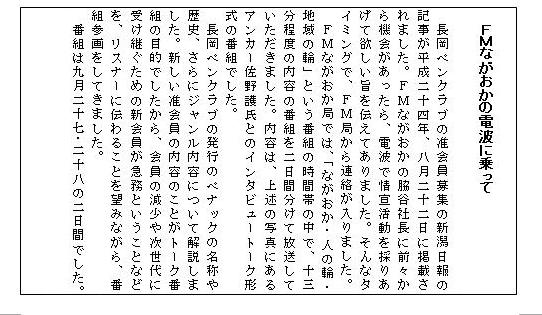 FMながおかの電波に乗って
長岡ペンクラブの准会員募集の新潟日報の
記事が平成二十四年、八月二十二日に掲載さ
れました。FMながおかの脇谷社長に前々か
ら機会があったら、電波で情宣活動を採りあ
げて欲しい旨を伝えてありました。そんなタ
イミングで、FM局から連絡が入りました。
FMながおか局では、「ながおか・人の輪・
地域の輪」という番組の時間帯の中で、十三
分程度の内容の番組を二日間分けて放送して
いただきました。内容は、上述の写真にある
アンカー佐野護氏とのインタビュートーク形
式の番組でした。
長岡ペンクラブの発行のペナックの名称や
歴史、さらにジャンル内容について解説しま
した。新しい准会員の内容のことがトーク番
組の目的でしたから、会員の減少や次世代に
受け継ぐための新会員が急務ということなど
を、リスナーに伝わることを望みながら、番
組参画をしてきました。
番組は九月二十七・二十八の二日間でした。